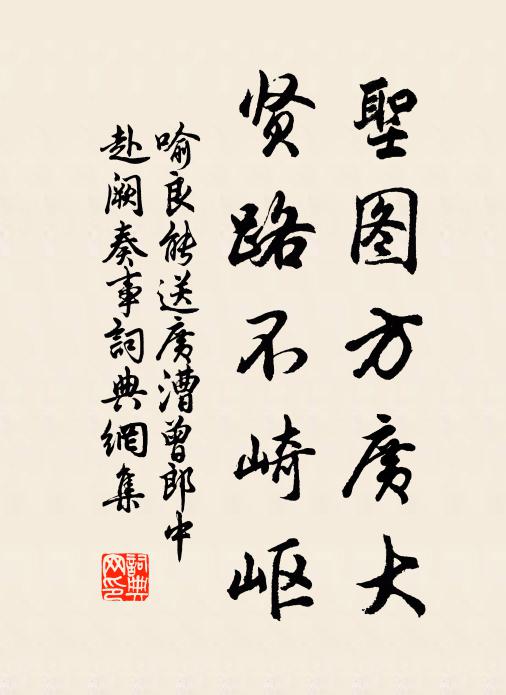 聖图方廣大
贤路不崎岖
喻良能送廣漕曾郎中
赴阙奏事詞典網集
詞典网印